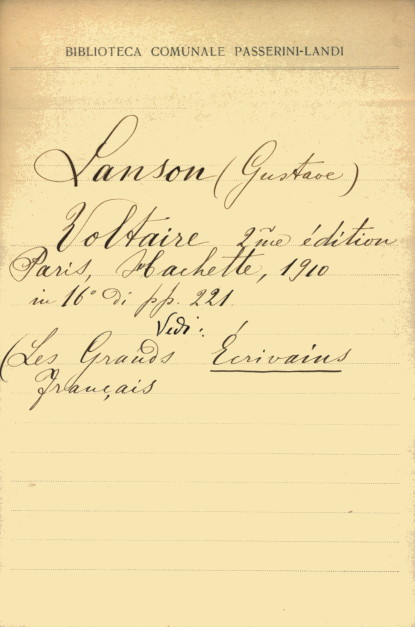 BIBLIOTECA COMUNALE PASSERINI-LANDI
Lanson (Gustave)
Voltaire 2me édition
Paris, Hachette, 1910
in 16° di pp. 221
Vedi:
(Les Grands Écrivains
Français